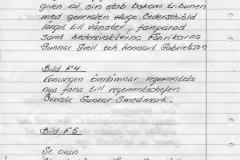 given av, sin stab bakom tribunen
med generalen Hugo Cederschiöld
längst till vänster, fanparad
samt hedersvakterna Fänrikarna
Gunnar Freil och Lennart Gabrielsson
Bild F 4.
Konungen överlämnar regementets
nya fana till regementschefen
Överste Gunnar Smedmark.
Bild F 5.
Se ovan